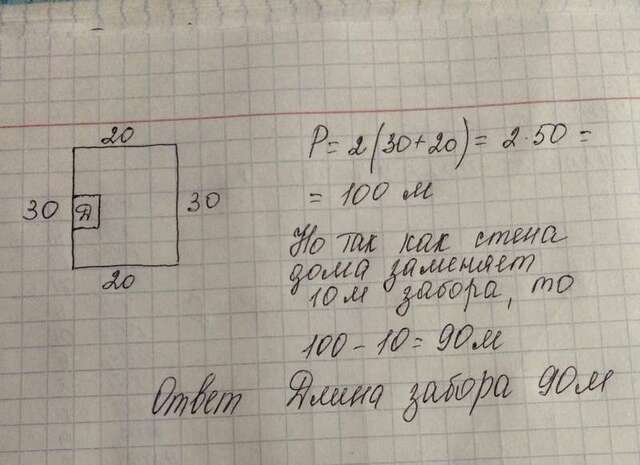 20
P = 2(30+20) = 2·50 =
= 100 м
30
Д
30
Но так как стена
дома заменяет
10м забора, то
20
100 - 10 = 90м
Ответ Длина забора 90м